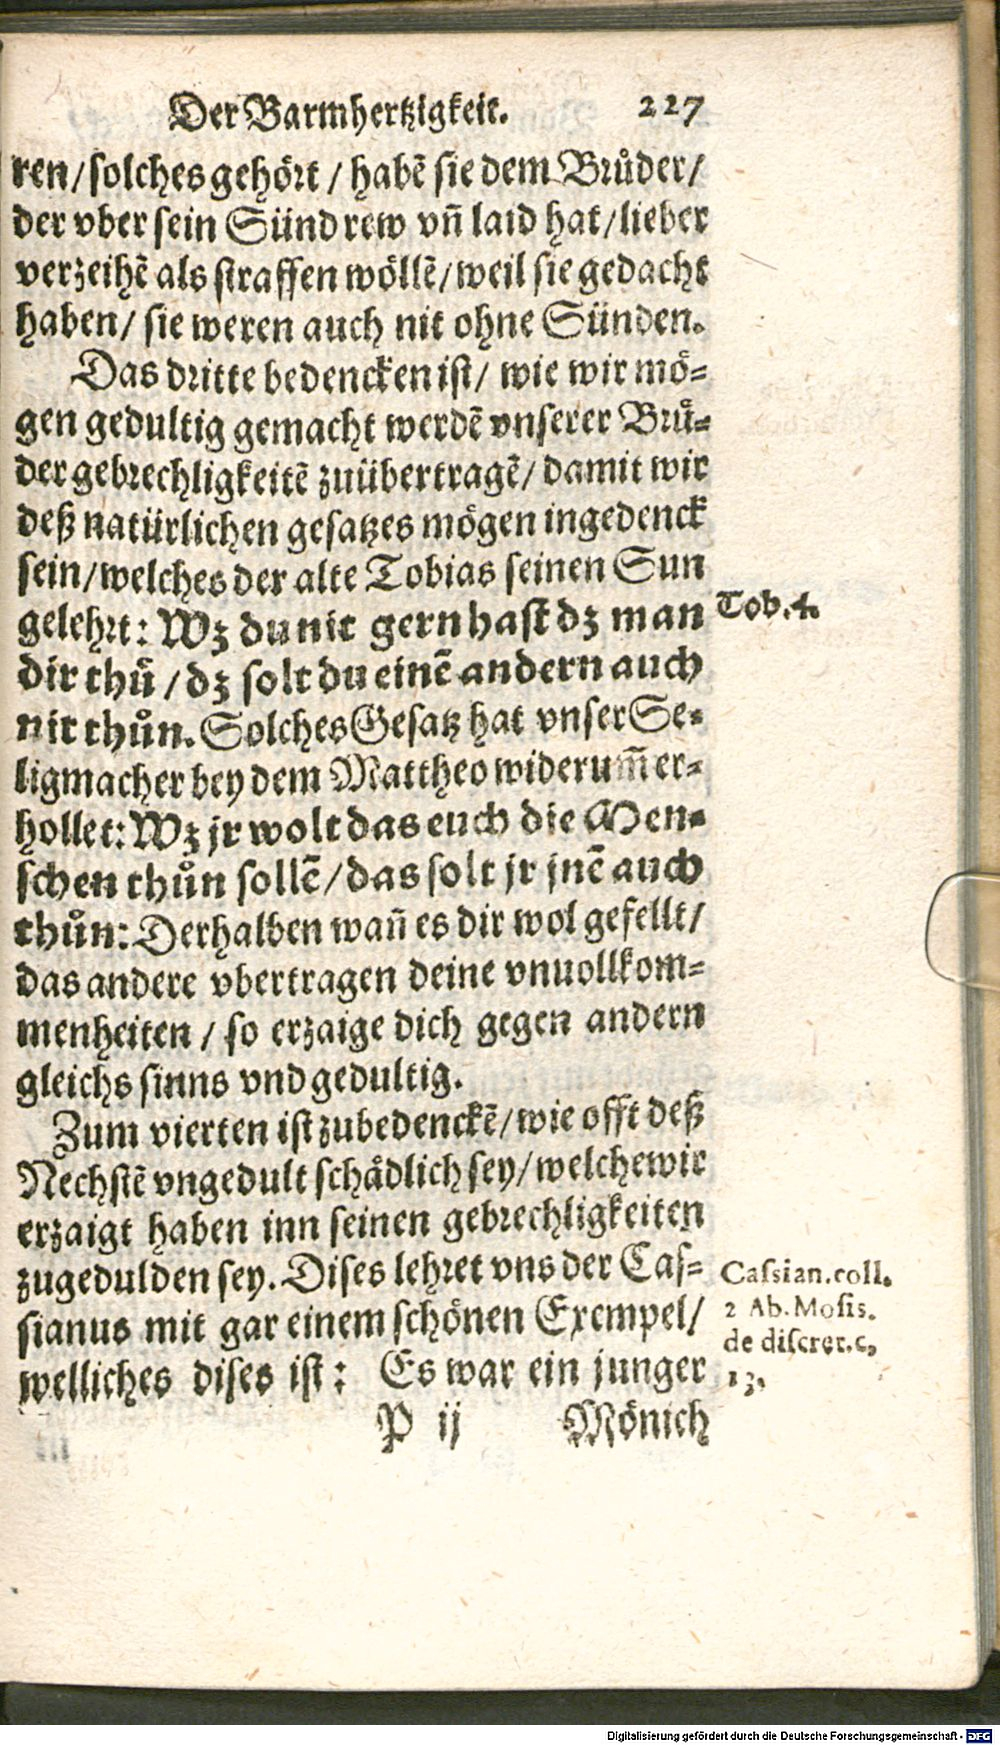 Der Barmhertzigkeit. 227
ren/ solches gehört / habẽ sie dem Brůder/
der vber sein Sünd rew vñ laid hat/ lieber
verzeihẽ als straffen wöllẽ/ weil sie gedacht
haben/ sie weren auch nit ohne Sünden.
Das dritte bedencken ist/ wie wir mö-
gen gedultig gemacht werdẽ vnserer Brü-
der gebrechligkeitẽ zuübertragẽ/ damit wir
deß natürlichen gesatzes mögen ingedenck
sein/ welches der alte Tobias seinen Sun
gelehrt: Wz du nit gern hast dz man
Tob. 4.
dir thů / dz solt du einẽ andern auch
nit thůn. Solches Gesatz hat vnser Se-
ligmacher bey dem Mattheo widerum̃ er-
hollet: Wz jr wolt das euch die Men-
schen thůn sollẽ/ das solt jr jnẽ auch
thůn: Derhalben wañ es dir wol gefellt/
das andere vbertragen deine vnuollkom-
menheiten / so erzaige dich gegen andern
gleichs sinns vnd gedultig.
Zum vierten ist zubedenckẽ/ wie offt deß
Nechstẽ vngedult schädlich sey/ welche wir
erzaigt haben inn seinen gebrechligkeiten
zugedulden sey. Dises lehret vns der Cas-
sianus mit gar einem schönen Exempel/
welliches dises ist: Es war ein junger
Cassian. coll.
2 Ab. Mosis.
de discret. c,
13.
P ij Mönich
Digitalisierung gefördert durch die Deutsche Forschungsgemeinschaft - DFG